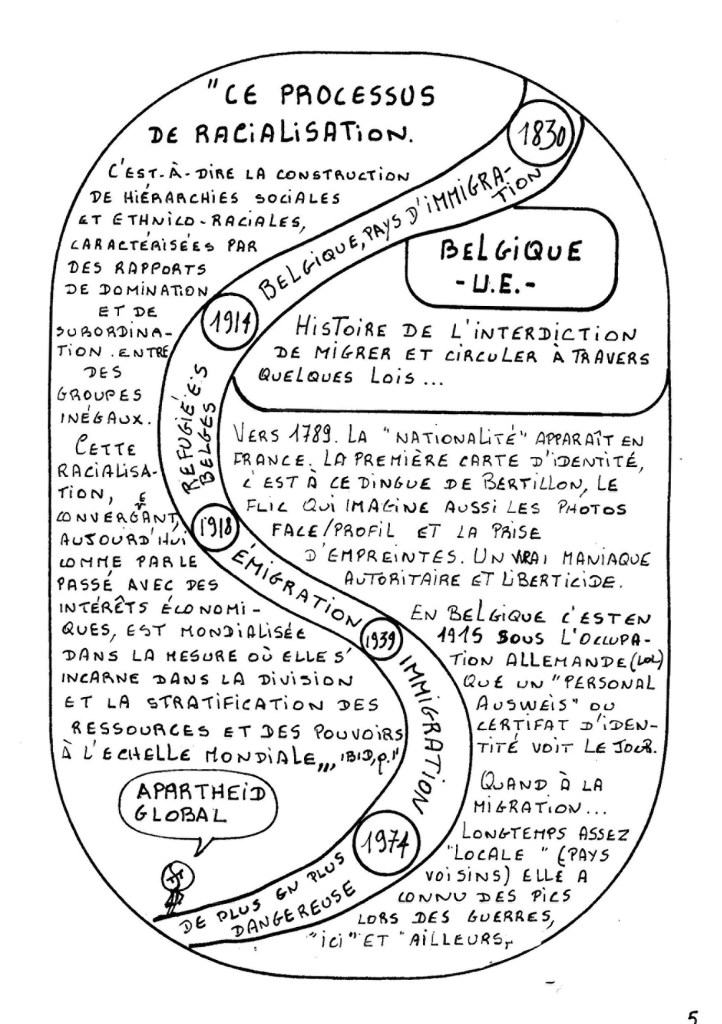 "CE PROCESSUS
DE RACIALISATION.
C'EST-À-DIRE LA CONSTRUCTION
DE HIÉRARCHIES SOCIALES
ET ETHNICO-RACIALES,
CARACTÉRISÉES PAR
DES RAPPORTS
DE DOMINATION
ET DE
SUBORDINA-
TION ENTRE
DES
GROUPES
INÉGAUX.
CETTE
RACIALISA-
TION,
CONVERGANT,
AUJOURD'HUI
COMME PAR LE
PASSÉ AVEC DES
INTÉRÊTS ÉCONOMI-
QUES, EST MONDIALISÉE
DANS LA MESURE OÙ ELLE S'
INCARNE DANS LA DIVISION
ET LA STRATIFICATION DES
RESSOURCES ET DES POUVOIRS
À L'ECHELLE MONDIALE,,, IBID, p.1"
1830
BELGIQUE, PAYS D'IMMIGRA-
TION
1914
REFUGIÉ·E·S
BELGES
1918
ÉMIGRATION
1939
IMMIGRATION
1974
DE PLUS EN PLUS
DANGEREUSE
APARTHEID
GLOBAL
BELGIQUE
- U.E. -
HISTOIRE DE L'INTERDICTION
DE MIGRER ET CIRCULER À TRAVERS
QUELQUES LOIS...
VERS 1789. LA "NATIONALITÉ" APPARAÎT EN
FRANCE. LA PREMIÈRE CARTE D'IDENTITÉ,
C'EST À CE DINGUE DE BERTILLON, LE
FLIC QUI IMAGINE AUSSI LES PHOTOS
FACE/PROFIL ET LA PRISE
D'EMPREINTES. UN VRAI MANIAQUE
AUTORITAIRE ET LIBERTICIDE.
EN BELGIQUE C'EST EN
1915 SOUS L'OCCUPA-
TION ALLEMANDE (LOL)
QUE UN "PERSONAL
AUSWEIS" OU
CERTIFAT D'IDEN-
TITÉ VOIT LE JOUR.
QUAND À LA
MIGRATION...
LONGTEMPS ASSEZ
"LOCALE" (PAYS
VOISINS) ELLE A
CONNU DES PICS
LORS DES GUERRES,
"ICI" ET "AILLEURS,
5